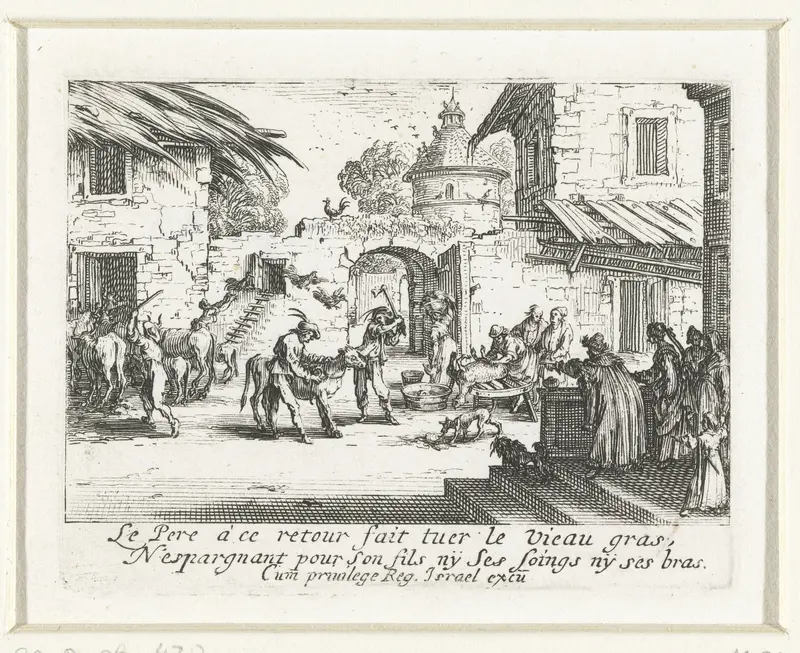 Le Pere à ce retour fait tuer le vieau gras,
N'espargnant pour son fils nÿ ses soings nÿ ses bras.
Cum privilege Reg. Israel excū